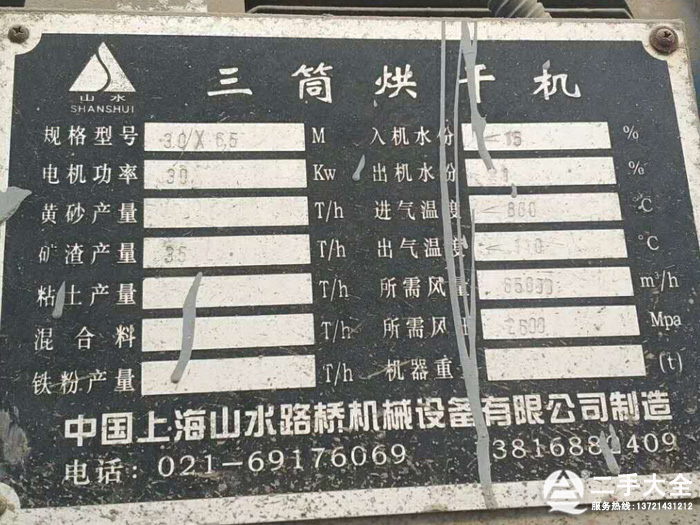 三筒烘干机
山水
SHANSHUI
规格型号 3.0 X 6.5 M 入机水份 ≤15 %
电机功率 30 Kw 出机水份 %
黄砂产量 T/h 进气温度 ≤ 800 ℃
矿渣产量 35 T/h 出气温度 ≤ 110 ℃
粘土产量 T/h 所需风量 85000 m³/h
混合料 T/h 所需风 2500 Mpa
铁粉产量 T/h 机器重 (t)
中国上海山水路桥机械设备有限公司制造
电话: 021-69176069
二手大全
服务热线:13721431212